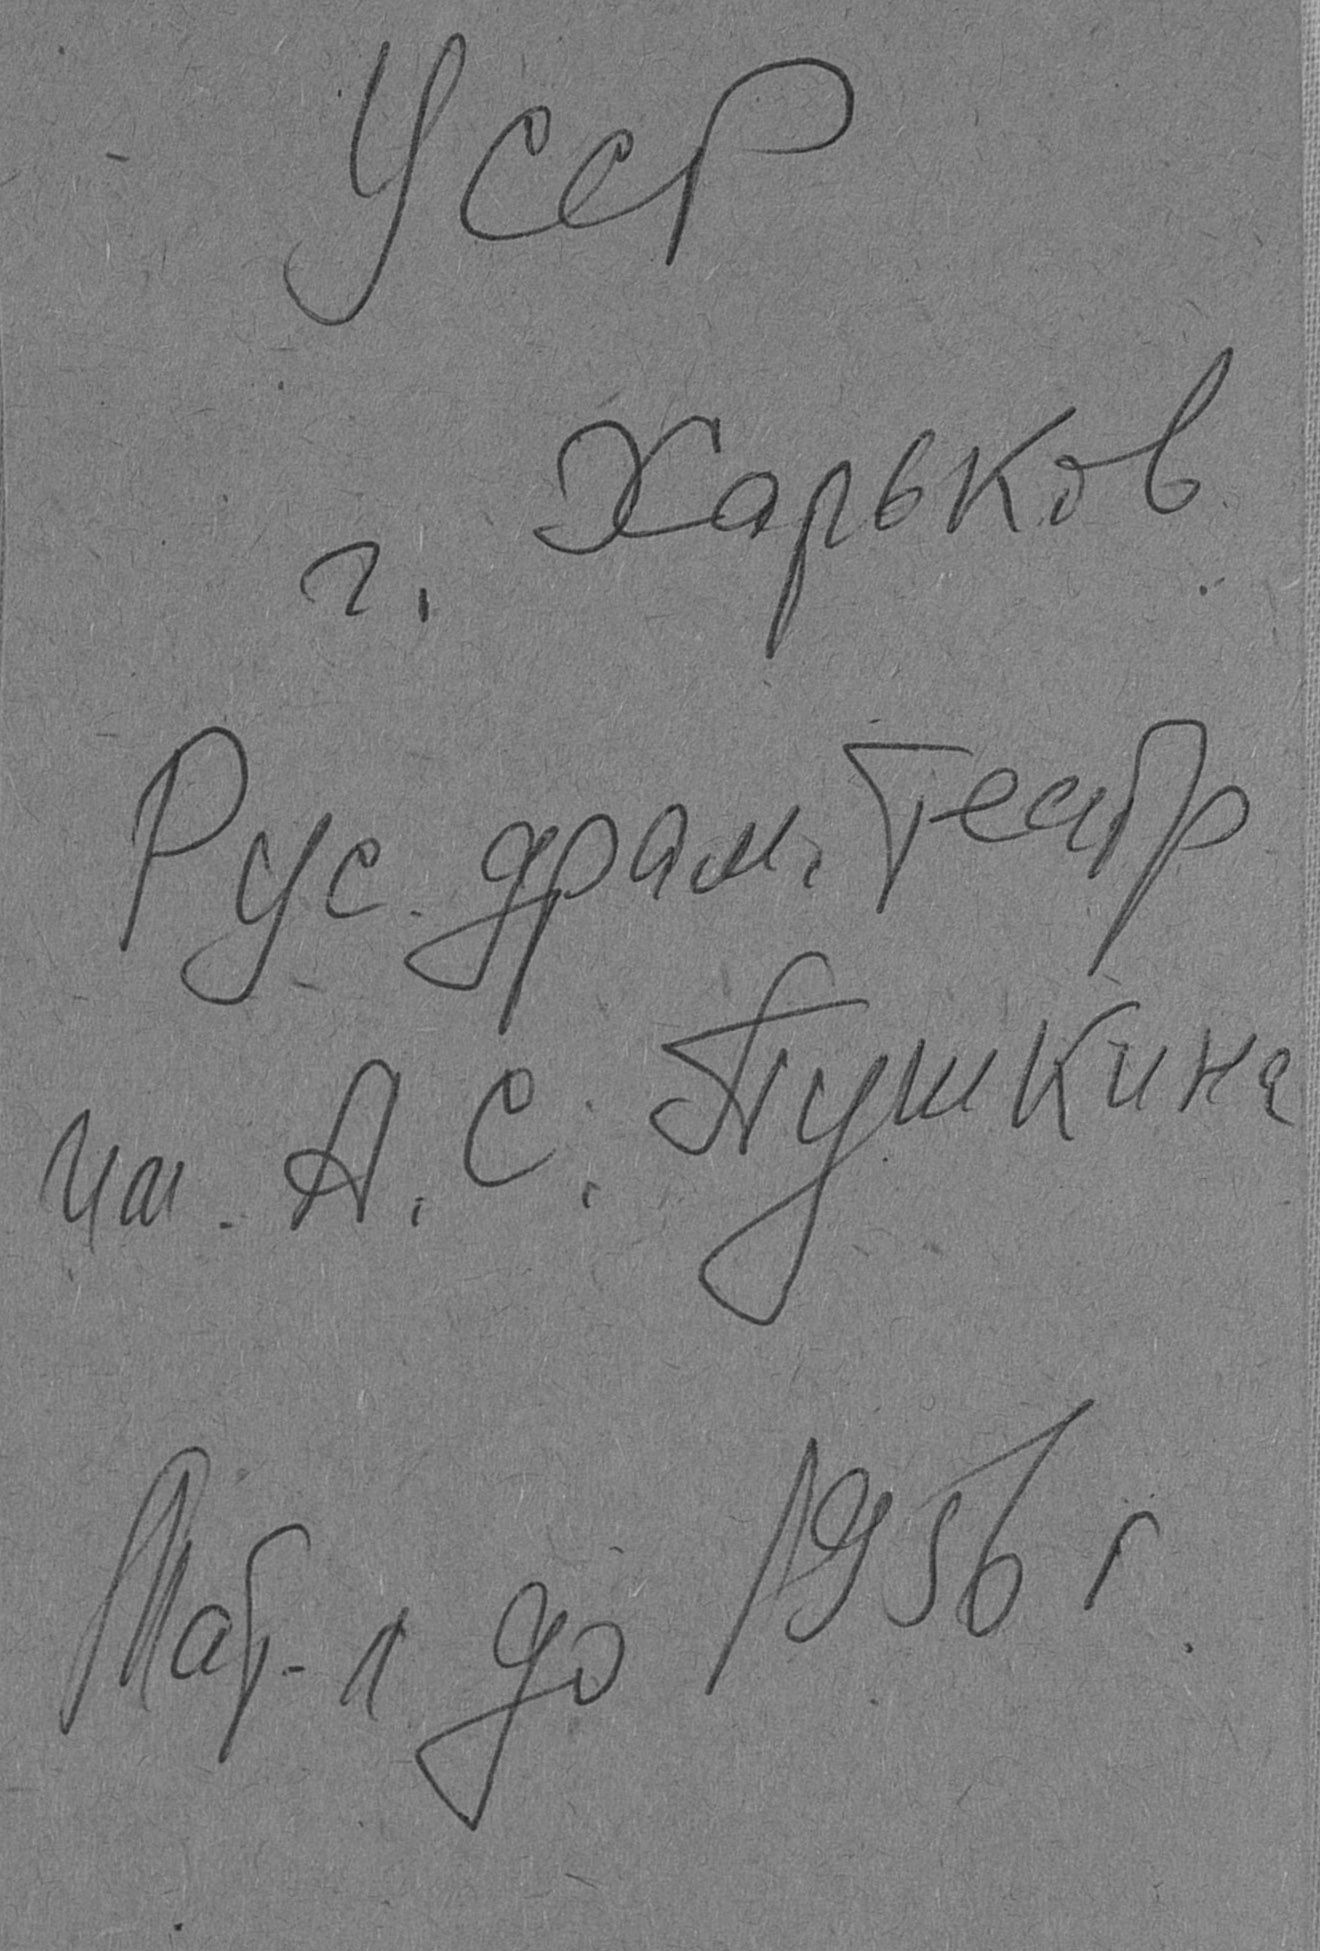 УССР
г. Харьков
Рус. драм. театр
им. А. С. Пушкина
Мат-л до 1956 г.